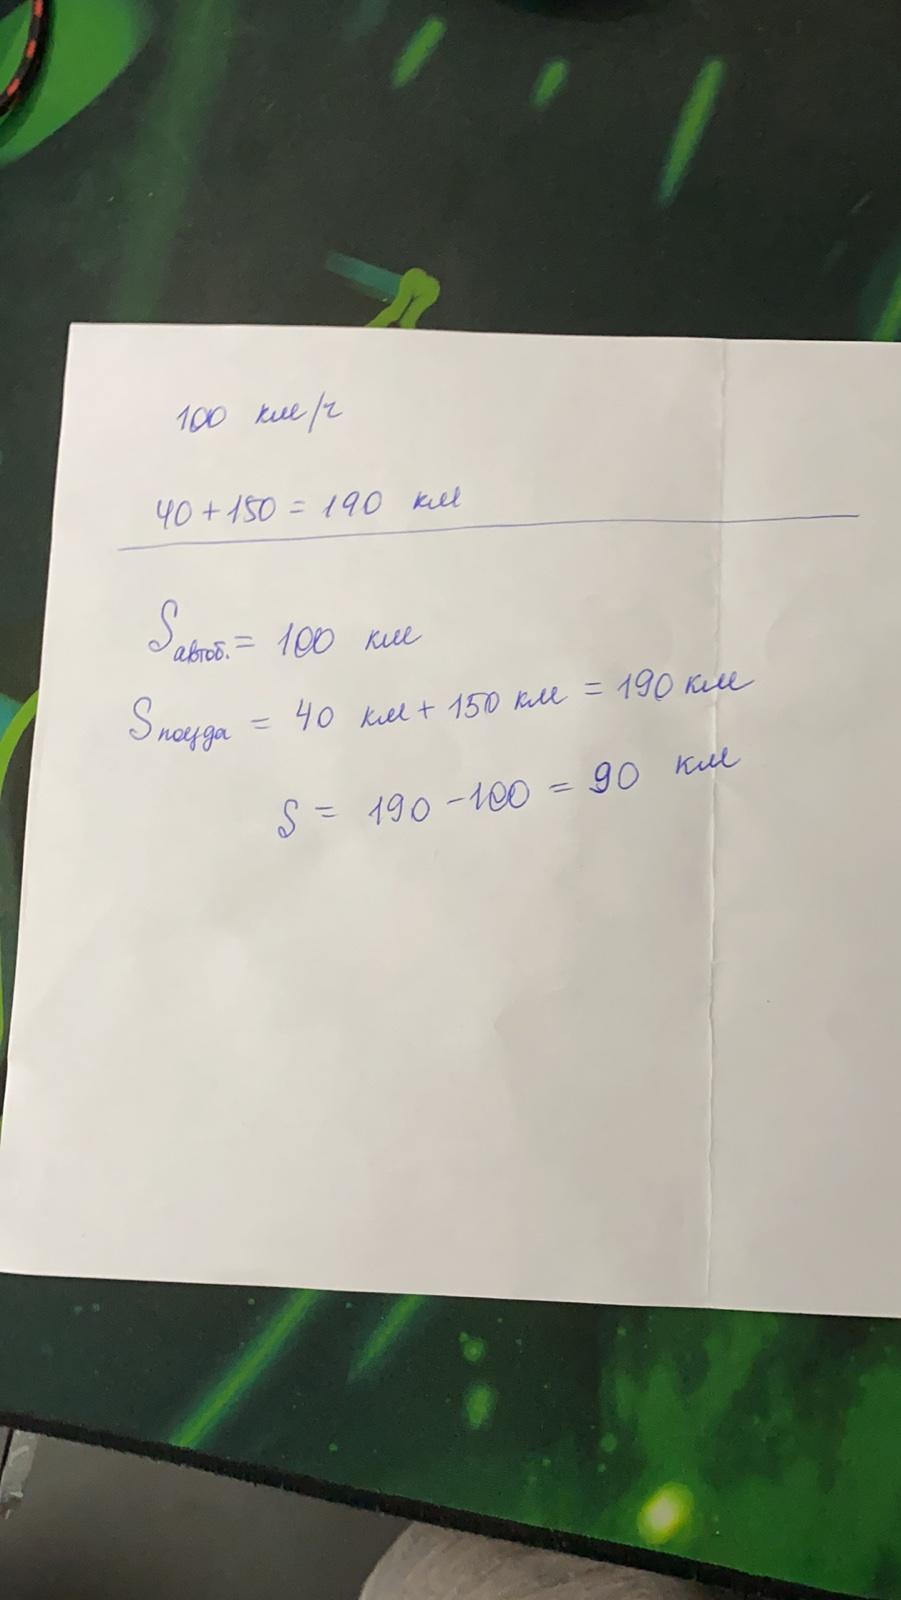 100 км/ч
40 + 150 = 190 км
Sавтоб. = 100 км
Sпоезда = 40 км + 150 км = 190 км
S = 190 - 100 = 90 км